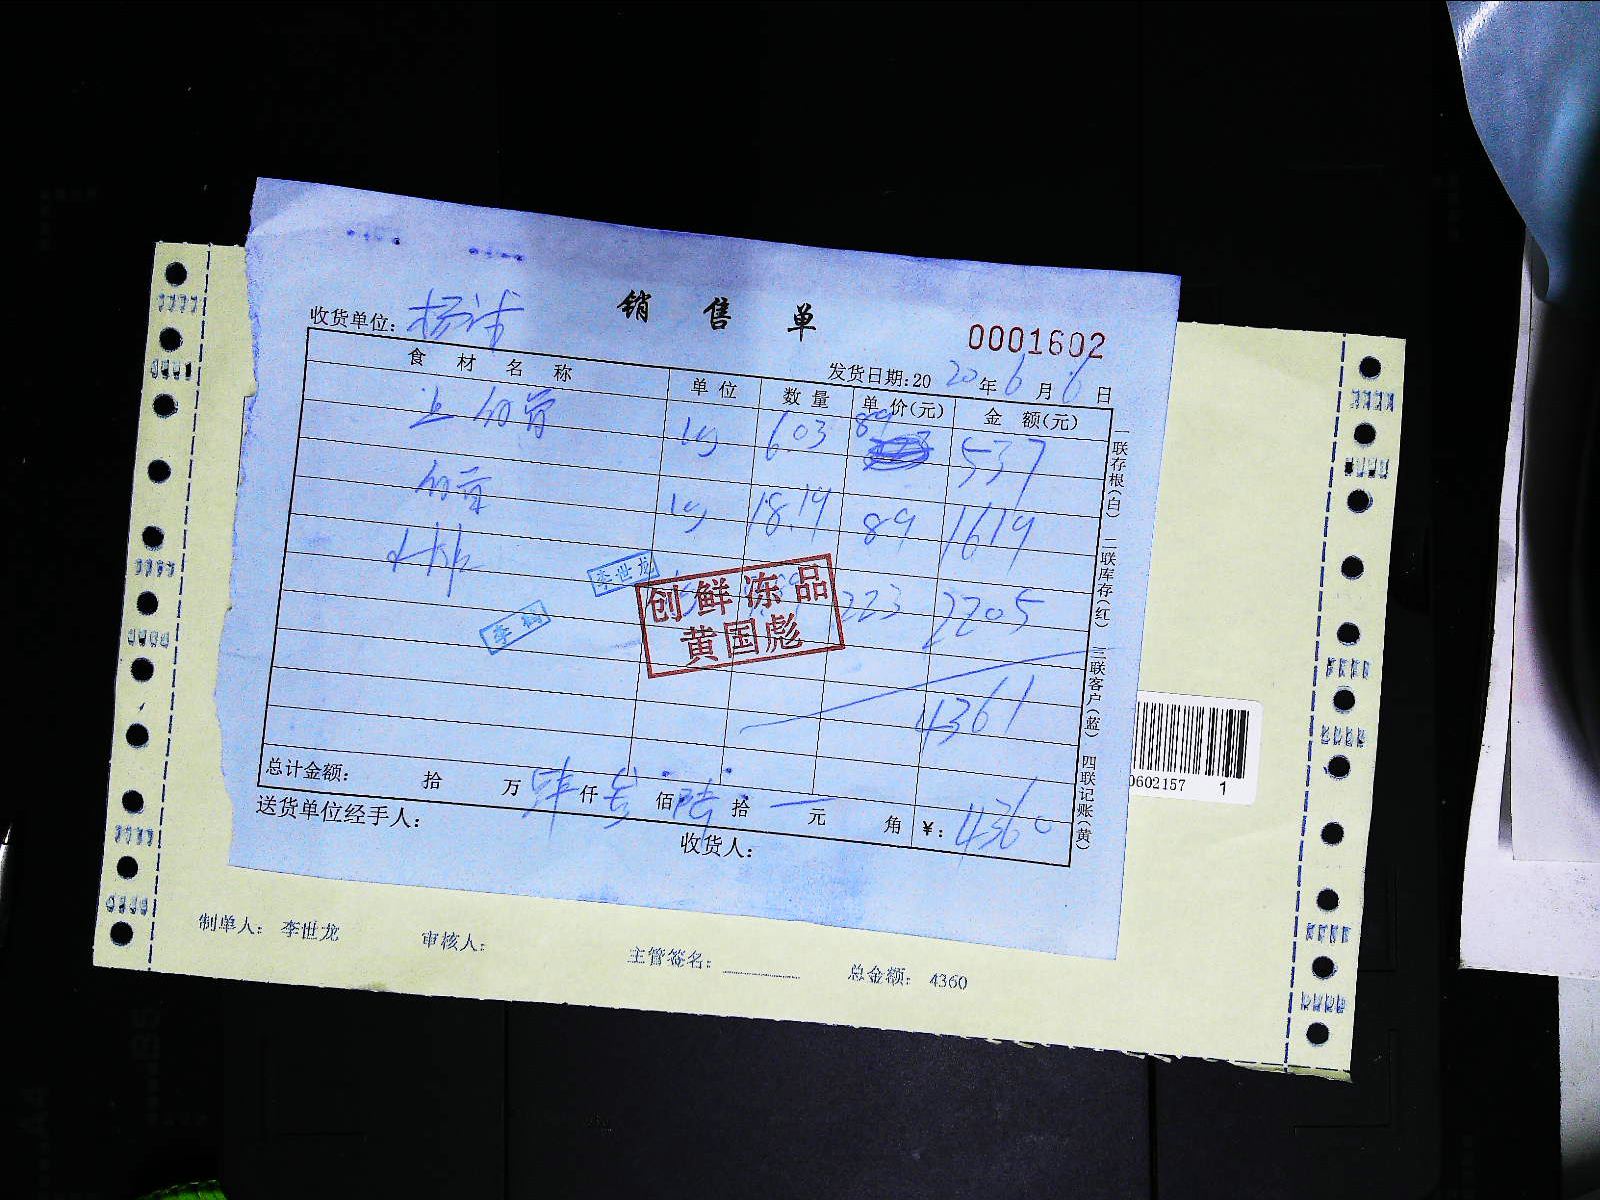 销售单
收货单位：
0001602
发货日期：2020年6月6日
食材名称 单位 数量 单价(元) 金额(元)
kg 6.03 89 537
kg 18.19 89 1619
223 2205
4361
总计金额： 拾 万 肆仟 叁佰 陆拾 一元 角 ¥：4360
送货单位经手人：
收货人：
李世龙
创鲜冻品
黄国彪
一联存根(白) 二联库存(红) 三联客户(蓝) 四联记账(黄)
0602157 1
制单人： 李世龙 审核人： 主管签名： 总金额： 4360